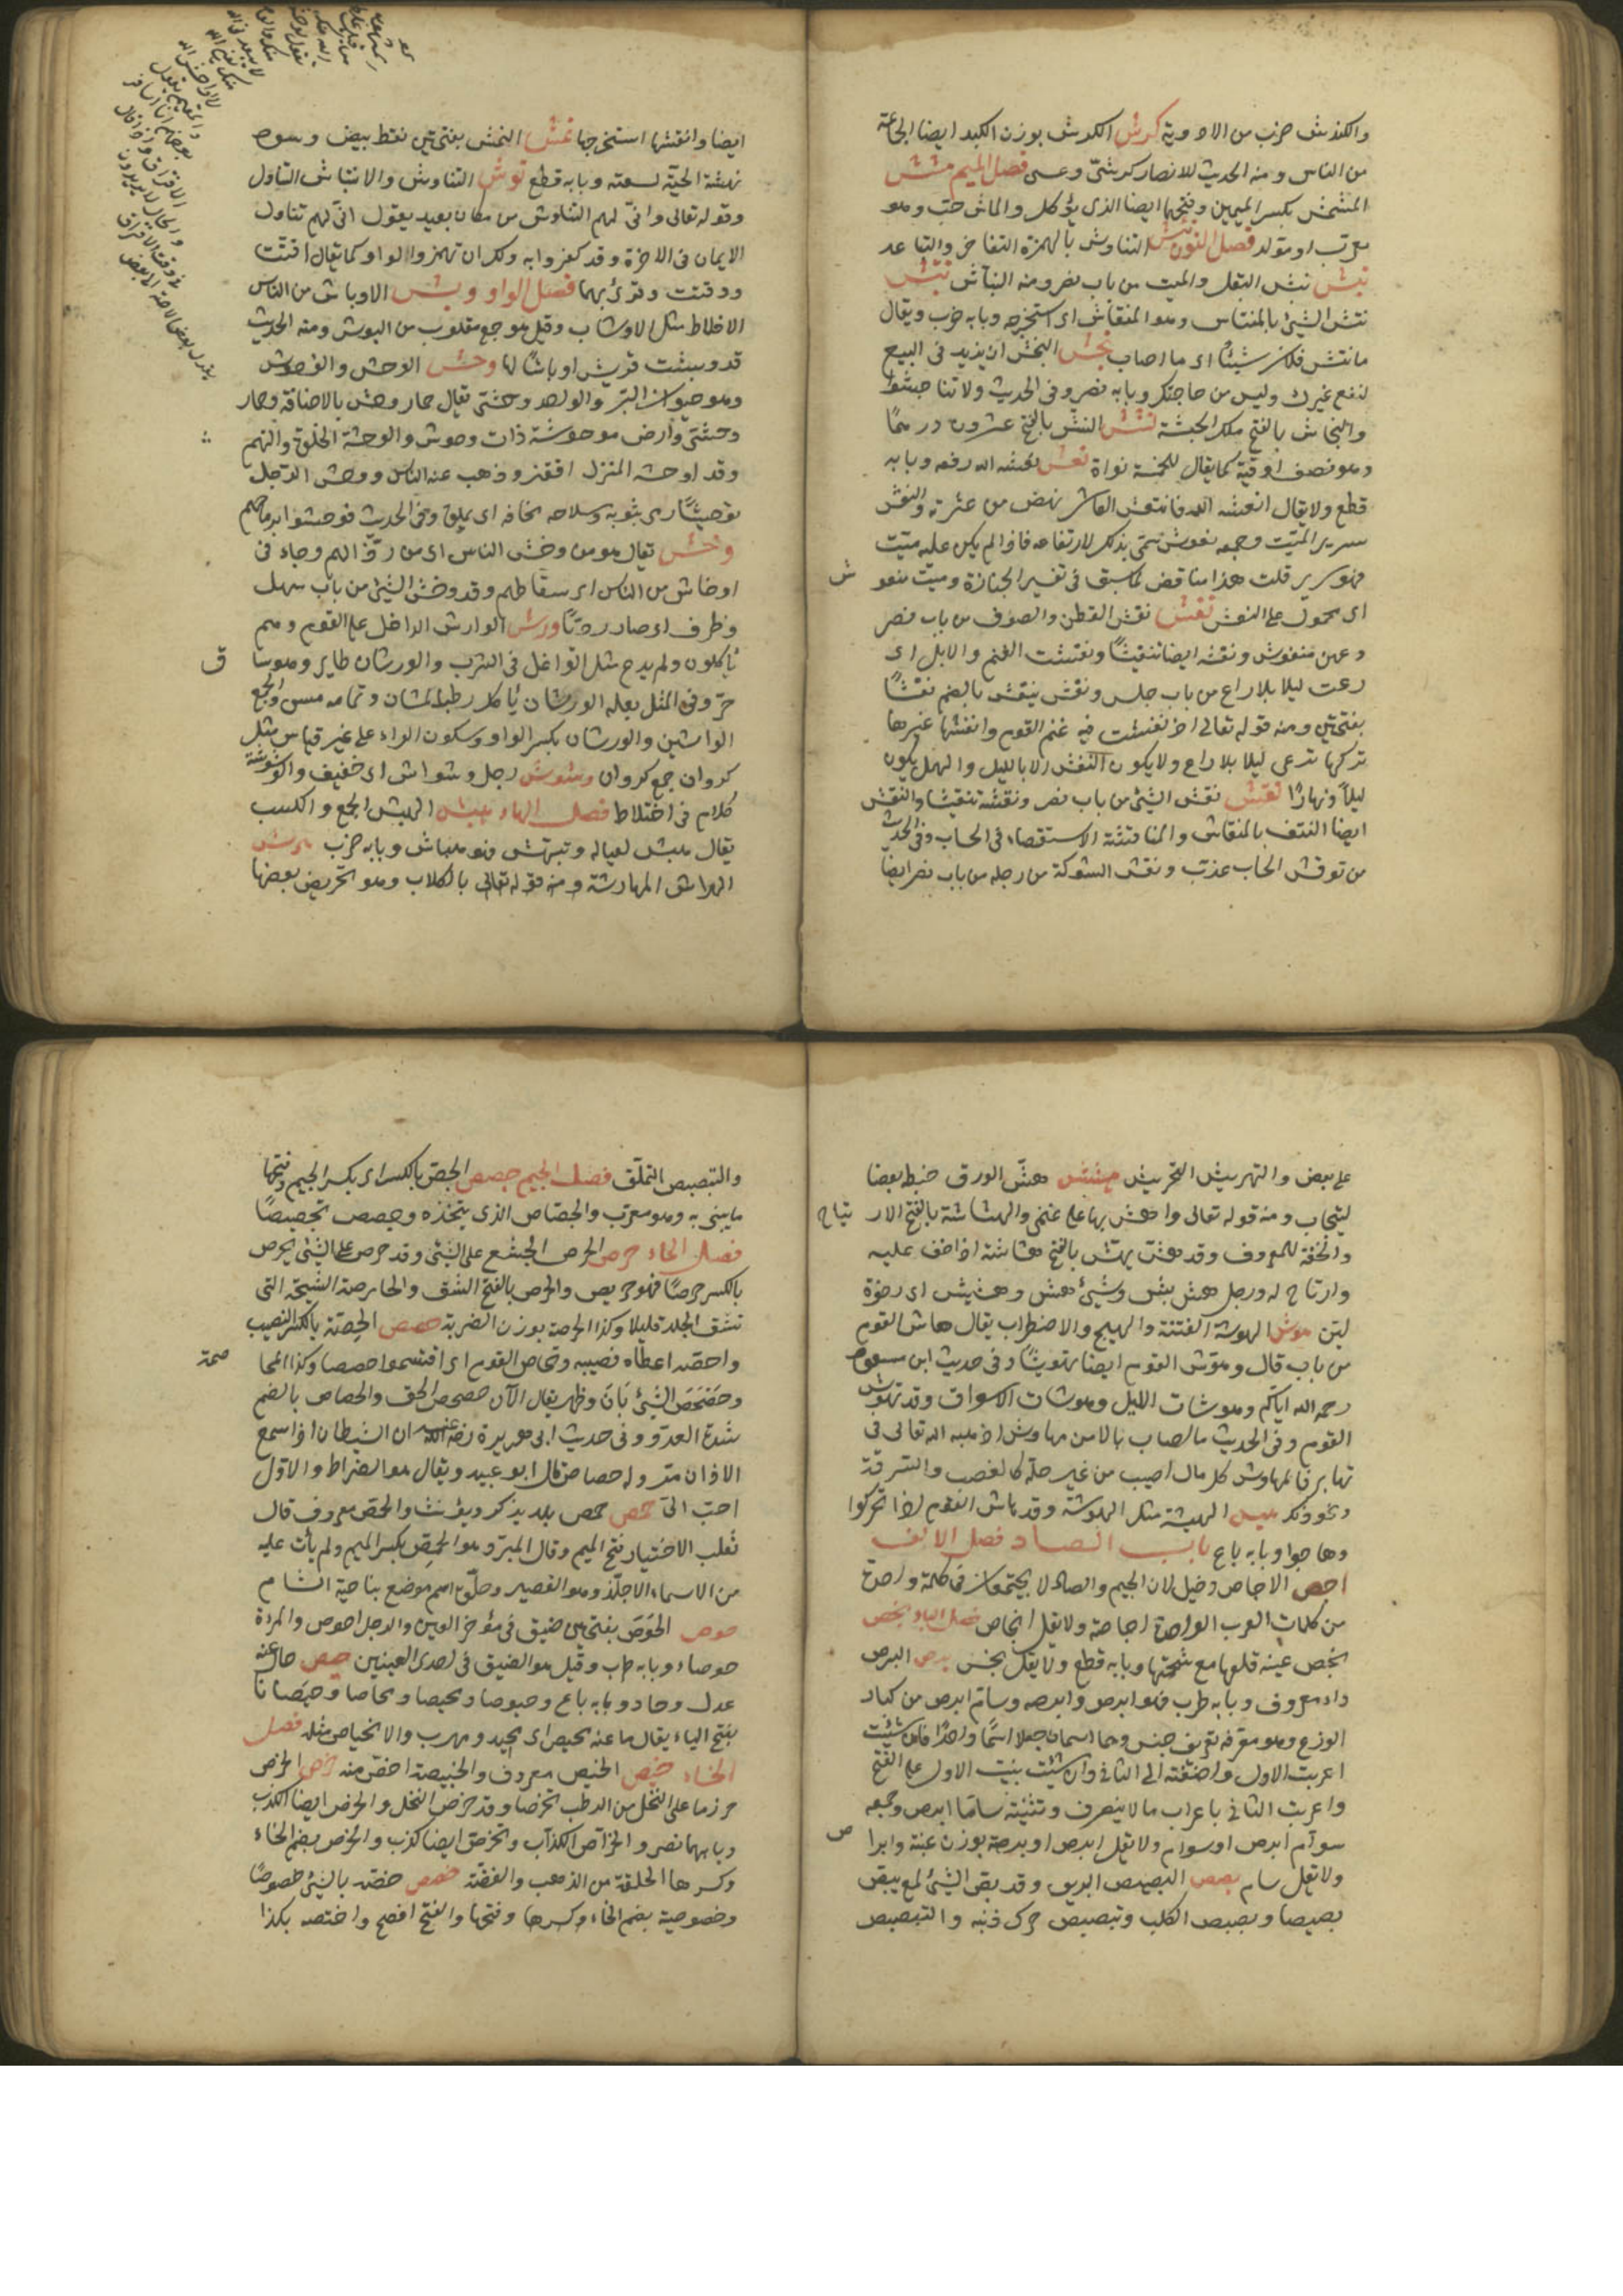 والكندش ضرب من الادوية كرش الكرش بوزن الكبد ايضا الجماعة
من الناس ومنه الحديث للانصار كرشى وعيبتى فصل الميم مشش
المشمش بكسر الميمين وفتحهما ايضا الذى يؤكل والماش حب وهو
معرب او مولد فصل النون نأش التناوش بالهمزة التأخر والتباعد
نبش نبش البقل والميت من باب نصر ومنه النباش نتش
نتش الشيئ بالمنتاش وهو المنقاش اى استخرجه وبابه ضرب ويقال
ما نتش من فلان شيئا اى ما اصاب نجش النجش ان يزيد فى البيع
لينفع غيرك وليس من حاجتك وبابه نصر وفى الحديث ولا تناجشوا
والنجاش بالفتح ملك الحبشة نشش النش بالفتح عشرون درهما
وهو نصف اوقية كما يقال للخمسة نواة نعش نعشه الله رفعه وبابه
قطع ولا يقال انعشه الله فانتعش العاثر نهض من عثرته والنعش
سرير الميت وجمعه نعوش سمى بذلك لارتفاعه فاذا لم يكن عليه ميت
فهو سرير قلت هذا مناقض لما سبق فى تفسير الجنازة وميت منعو ش
اى محمول على النعش نفش نفش القطن والصوف من باب نصر
وعهن منفوش ونفشه ايضا تنفيشا ونفشت الغنم والابل اى
رعت ليلا بلا راع من باب جلس ونفش ينفش بالضم نفشا
بفتحتين ومنه قوله تعالى اذ نفشت فيه غنم القوم وانفشها غيرها
تركها ترعى ليلا بلا راع ولا يكون النفش الا بالليل والهمل يكون
ليلا ونهارا نقش نقش الشيئ من باب نصر ونقشه تنقيشا والنقش
ايضا النتف بالمنقاش والمناقشة الاستقصاء فى الحساب وفى الحديث
من نوقش الحساب عذب ونقش الشوكة من رجله من باب نصر ايضا
ايضا وانتقشها استخرجها نمش النمش بفتحتين نقط بيض وسود
نهشته الحية لسعته وبابه قطع نوش التناوش والانتياش التناول
وقوله تعالى وانى لهم التناوش من مكان بعيد يقول انى لهم تناول
الايمان فى الاخرة وقد كفروا به ولك ان تهمز الواو كما يقال اقتت
ووقتت وقرئ بهما فصل الواو وبش الاوباش من الناس
الاخلاط مثل الاوشاب وقيل هو جمع مقلوب من البوش ومنه الحديث
قد وبشت قريش اوباشا لها وحش الوحش والوحوش
وهو حيوان البر والواحد وحشى يقال حمار وحش بالاضافة وحمار
وحشى وارض موحوشة ذات وحوش والوحشة الخلوة والهم
وقد اوحشه المنزل اقفر وذهب عنه الناس ووحش الرجل
توحيشا رمى بثوبه وسلاحه مخافة ان يلحق وفى الحديث فوحشوا برماحهم
وخش يقال هو من وخش الناس اى من رذالهم وجاء فى
اوخاش من الناس اى سقاطهم وقد وخش الشيئ من باب سهل
وظرف اى صار رديا ورش الوارش الداخل على القوم وهم
يأكلون ولم يدع مثل الواغل فى الشرب والورشان طاير وهو ساق
حر وفى المثل بعلة الورشان يأكل رطب المشان وتمامه مس والجمع
الوراشين والورشان بكسر الواو وسكون الراء على غير قياس مثل
كروان جمع كروان وشوش رجل وشواش اى خفيف والوشوشة
كلام فى اختلاط فصل الهاء هبش الهبش الجمع والكسب
يقال هبش لعياله وتهبش فهو هباش وبابه ضرب هرش
الهراش المهارشة ومنه قوله تعالى بالكلاب وهو تحريض بعضها
على بعض والتهريش التحريش هشش هش الورق خبطه بعصا
ليتحات ومنه قوله تعالى واهش بها على غنمى والهشاشة بالفتح الار تياح
والخفة للمعروف وقد هش يهش بالفتح هشاشة اذا خف عليه
وارتاح له ورجل هش بش وشيئ هش وهشيش اى رخوة
لين هوش الهوشة الفتنة والهيج والاضطراب يقال هاش القوم
من باب قال وهوش القوم ايضا تهويشا وفى حديث ابن مسعود
رحمه الله اياكم وهوشات الليل وهوشات الاسواق وقد تهوش
القوم وفى الحديث من اصاب مالا من مهاوش اذهبه الله تعالى فى
نهابر فالمهاوش كل مال اصيب من غير حله كالغصب والسرقة
ونحو ذلك هيش الهيشة مثل الهوشة وقد هاش القوم اذا تحركوا
وهاجوا وبابه باع باب الصاد فصل الالف
اجص الاجاص دخيل لان الجيم والصاد لا يجتمعان فى كلمة واحدة
من كلمات العرب الواحدة اجاصة ولا تقل انجاص فصل الباء بخص
بخص عينه قلعها مع شحمتها وبابه قطع ولا تقل بخس برص البرص
داء معروف وبابه طرب فهو ابرص وابرصه وسام ابرص من كبار
الوزغ وهو معرفة تعريف جنس وهما اسمان جعلا اسما واحدا فان شئت
اعربت الاول واضفته الى الثانى وان شئت بنيت الاول على الفتح
واعربت الثانى باعراب ما لا ينصرف وتثنيته ساما ابرص وجمعه
سوام ابرص او سوام ولا تقل ابرص او برصة بوزن عنبة وابرا ص
ولا تقل سام بصص البصيص البريق وقد بص الشيئ لمع يبص
بصيصا وبصبص الكلب وتبصبص حرك ذنبه والتبصبص
والتبصبص التملق فصل الجيم جصص الجص بالكسر اى بكسر الجيم وفتحها
ما يبنى به وهو معرب والجصاص الذى يتخذه وجصص تجصيصا
فصل الحاء حرص الحرص الجشع على الشيئ وقد حرص على الشيئ يحرص
بالكسر حرصا فهو حريص والحرص بالفتح الشق والحارصة الشجة التى
تشق الجلد قليلا وكذا الحرصة بوزن الضربة حصص الحصة بالكسر النصيب
واحصه اعطاه نصيبه وتحاص القوم اى اقتسموا حصصا وكذا المحا صة
وحصحص الشيئ بان وظهر يقال الآن حصحص الحق والحصاص بالضم
شدة العدو وفى حديث ابى هريرة رضى الله عنه ان الشيطان اذا سمع
الاذان مر وله حصاص قال ابو عبيد ويقال هو الضراط والاول
احب الى حمص حمص بلد يذكر ويؤنث والحمص معروف قال
ثعلب الاختيار فتح الميم وقال المبرد هو الحمص بكسر الميم ولم يأت عليه
من الاسماء الا حلز وهو القصير وحلق اسم موضع بناحية الشام
حوص الحوص بفتحتين ضيق فى مؤخر العين والرجل احوص والمرءة
حوصاء وبابه طرب وقيل هو الضيق فى احدى العينين حيص حاص عنه
عدل وحاد وبابه باع وحيوصا ومحيصا ومحاصا وحيصانا
بفتح الياء يقال ما عنه محيص اى محيد ومهرب والانحياص مثله فصل
الخاء خبص الخبيص معروف والخبيصة اخص منه خرص الخرص
حرز ما على النخل من الرطب تمرا وقد خرص النخل والخرص ايضا الكذب
وبابهما نصر والخراص الكذاب وتخرص ايضا كذب والخرص بضم الخاء
وكسرها الحلقة من الذهب والفضة خصص خصه بالشيئ خصوصا
وخصوصية بضم الخاء وكسرها وفتحها والفتح افصح واختصه بكذا